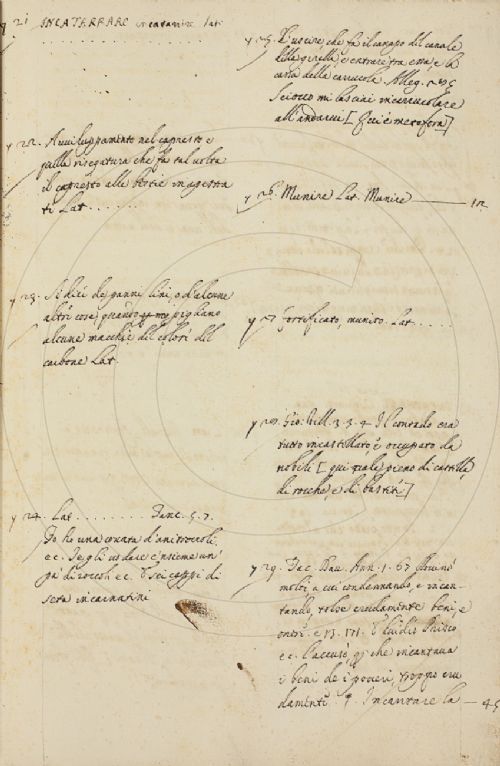 y 21 INCATERRARE incatenire Lat.
y 22. Avviluppamento nel capresto e
quella risegatura che fa tal volta
il capresto alle bestie incapestra
ti Lat.
y 23. Si dice de panni lini, o d'alcune
altre cose, quando pigliano
alcune macchie del colore del
carbone Lat.
y 24. Lat. Fanc. 5. 7.
Io ho una
e c. Se gli insieme un
pa' di e c. E sei cappi di
seta incarnatini
y 25. L'uscire che fa il canapo del canale
della girella, e entrare tra essa, e la
cassa della carrucola. Alleg.
Sciocco mi lasciai incarrucolare
all'andarvi [Qui è metafora]
y 26. Munire Lat. Munire 12
y 27 Fortificato, munito. Lat.
y 28. Gio: Vill. 3. 3. 4 Il contado era
tutto incastellato e occupato da
nobili [qui vale pieno di castella,
di rocche, e di bastite]
y 29. Dac. Dav. Ann. 1. 67
molti a cui condennando, e incan-
tando, tolse crudamente beni, e
onori. e Prisco
e c. l'accusò, che incantava
i beni de i poveri, troppo cru
damente. ¶. Incantare la — 45